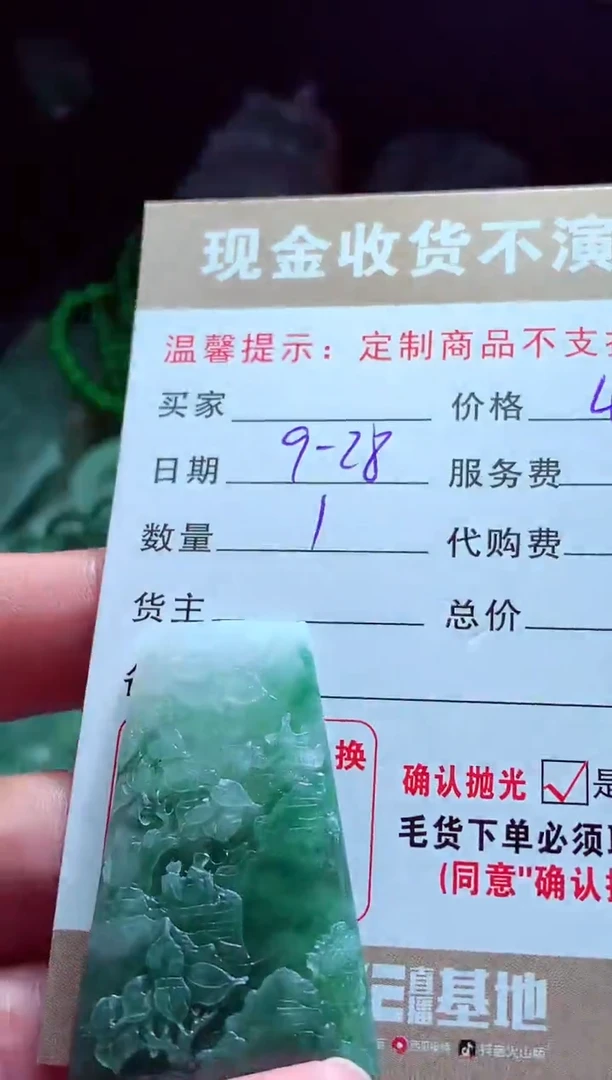 现金收货不演
温馨提示：定制商品不支
买家 价格 4
日期 9-28 服务费
数量 1 代购费
货主 总价
换
确认抛光 ☑ 是
毛货下单必须
(同意"确认
直播基地
抖音火山版